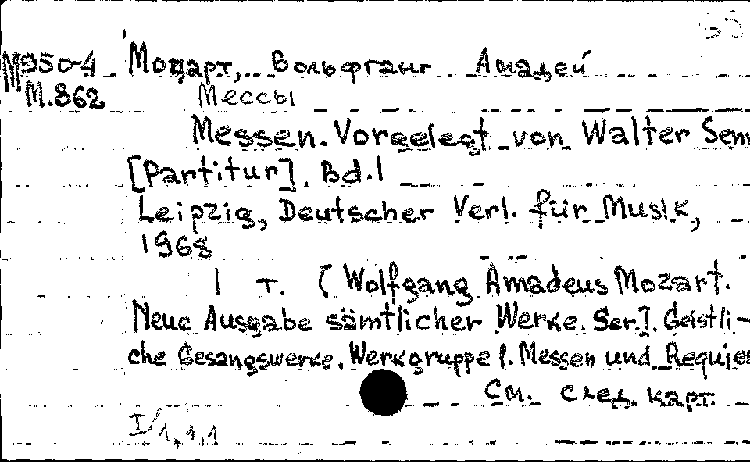 М950-4 Моцарт, Вольфганг Амадей
М.862 Мессы
Messen. Vorgelegt von Walter Sem
[Partitur]. Bd.1
Leipzig, Deutscher Verl. für Musik,
1968
1 т. (Wolfgang Amadeus Mozart.
Neue Ausgabe sämtlicher Werke. Ser.I. Geistli-
che Gesangswerke. Werkgruppe 1. Messen und Requiem
См. след. карт.
I/1,1,1